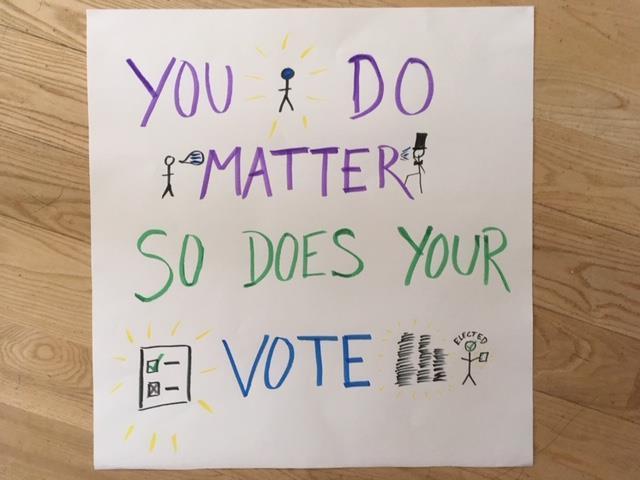 YOU DO
MATTER
SO DOES YOUR
VOTE
ELECTED